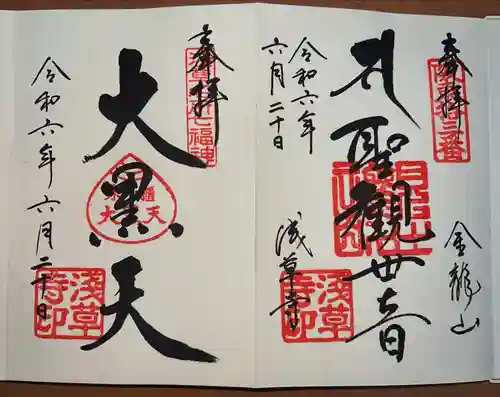 奉拝
坂東十三番
金龍山
聖觀世音
浅草寺
浅草寺印
令和六年
六月二十日
奉拝
浅草名所七福神
大黒天
浅草寺印
令和六年六月二十日